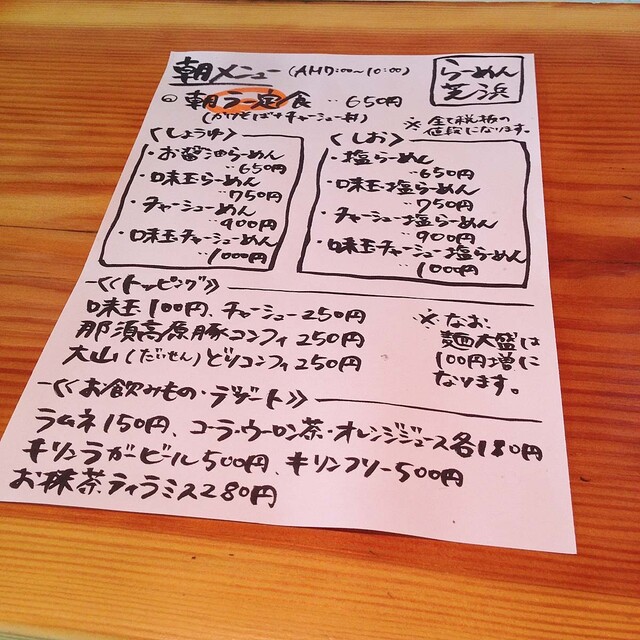 朝メニュー (AM7:00〜10:00)
らーめん
芝浜
朝ラー定食 ‥650円
(かけそば+チャーシュー丼)
※全て税抜の
値段になります。
〈しょうゆ〉
・お醤油らーめん
‥650円
・味玉らーめん
‥750円
・チャーシューめん
‥900円
・味玉チャーシューめん
‥1000円
〈しお〉
・塩らーめん
‥650円
・味玉塩らーめん
‥750円
・チャーシュー塩らーめん
‥900円
・味玉チャーシュー塩らーめん
‥1000円
≪トッピング≫
味玉100円、チャーシュー250円
那須高原豚コンフィ250円
大山(だいせん)どりコンフィ250円
※なお、
麺大盛は
100円増に
なります。
≪お飲みもの・デザート≫
ラムネ150円、コーラ・ウーロン茶・オレンジジュース各180円
キリンラガービール500円、キリンフリー500円
お抹茶ティラミス280円